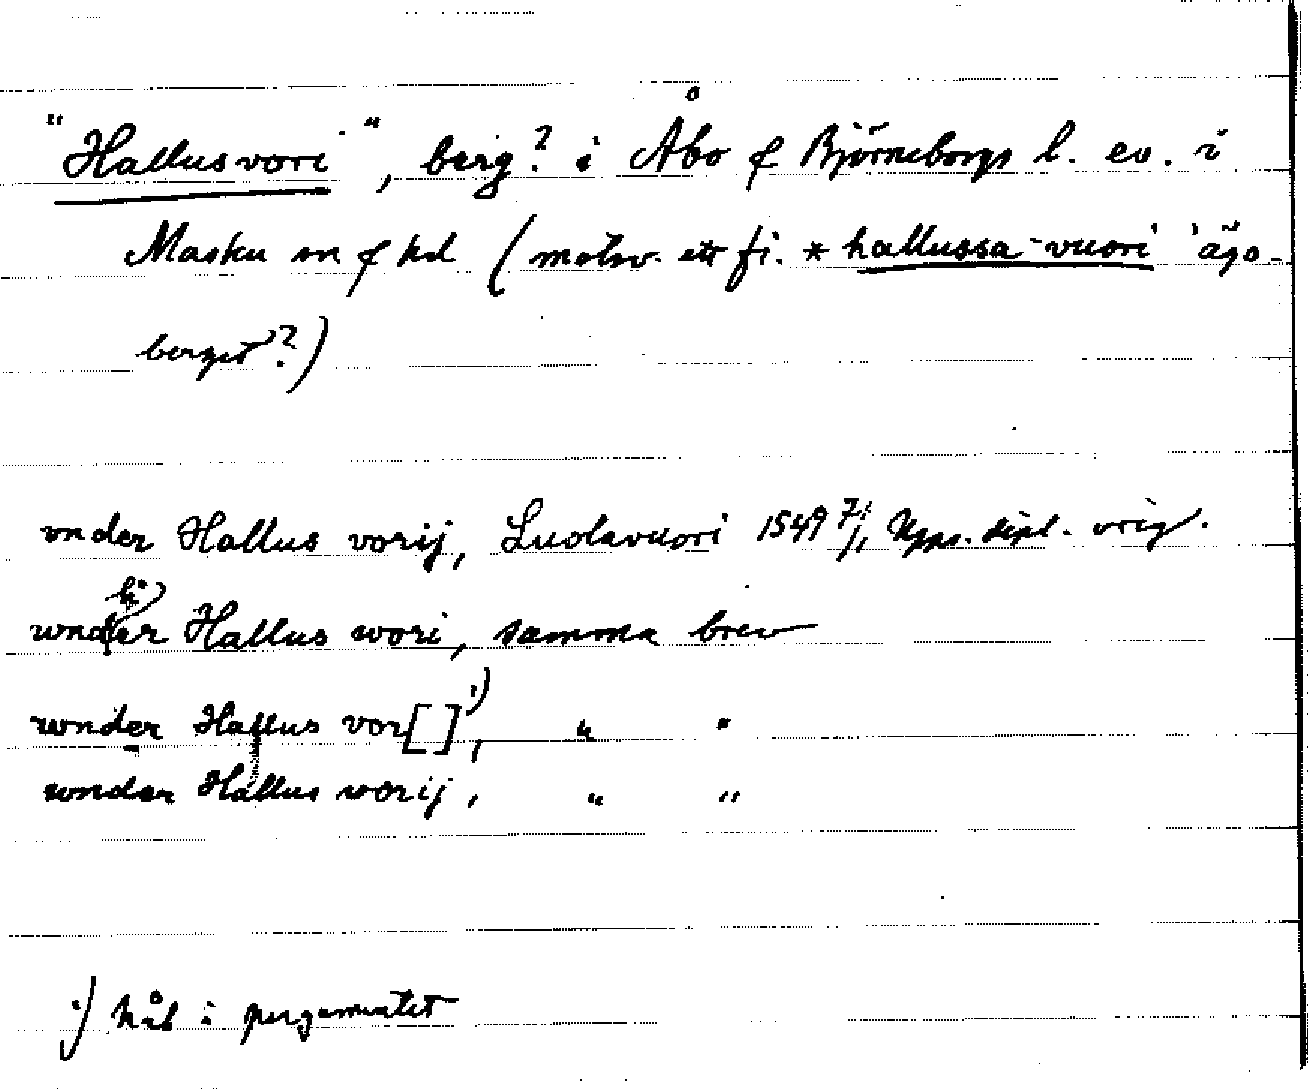 "Hallusvori", berg? i Åbo & Björneborgs l. ev. i
Masku sn & hd (motsv. ett fi. *hallussa-vuori 'ägo-
berget'?)
vnder Hallus vorij, Luolavuori 1549 7/1 Upps. dipl. orig.
wnder Hallus wori, samma brev
wnder Hallus vor[ ]¹⁾, " "
wnder Hallus worij, " "
¹⁾ hål i pergamentet